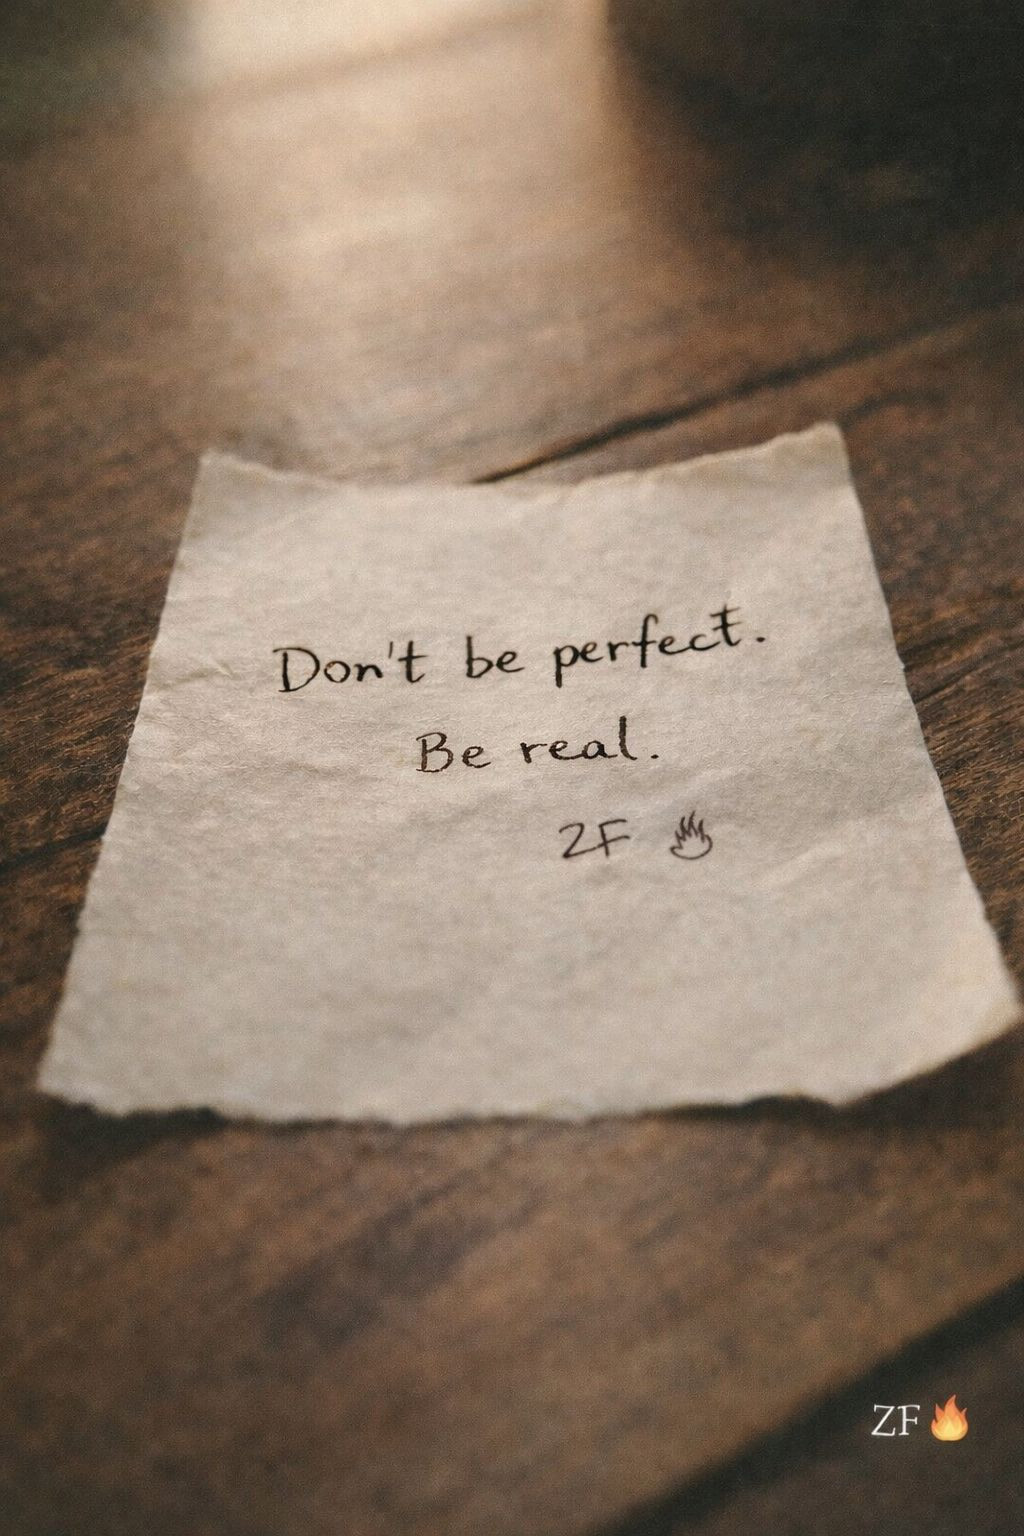 Don't be perfect.
Be real.
ZF 🔥
ZF🔥